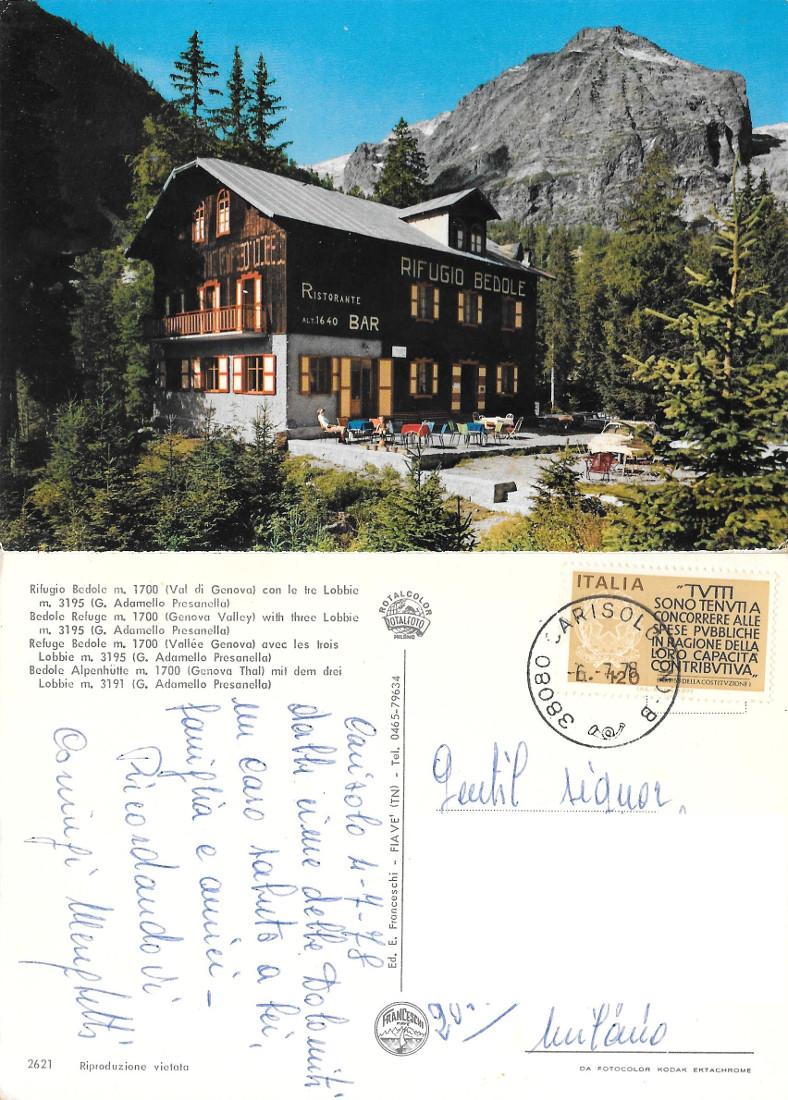 RIFUGIO BEDOLE
RISTORANTE
ALT. 1640 BAR
Rifugio Bedole m. 1700 (Val di Genova) con le tre Lobbie
m. 3195 (G. Adamello Presanella)
Bedole Refuge m. 1700 (Genova Valley) with three Lobbie
m. 3195 (G. Adamello Presanella)
Refuge Bedole m. 1700 (Vallée Genova) avec les trois
Lobbie m. 3195 (G. Adamello Presanella)
Bedole Alpenhütte m. 1700 (Genova Thal) mit dem drei
Lobbie m. 3191 (G. Adamello Presanella)
ROTALCOLOR
ROTALFOTO
MILANO
ITALIA
"TVTTI
SONO TENVTI A
CONCORRERE ALLE
SPESE PVBBLICHE
IN RAGIONE DELLA
LORO CAPACITÀ
CONTRIBVTIVA"
DELLA COSTITVZIONE)
120
38080 CARISOLO
6.-7.78
Carisolo 4-7-78
dalle cime delle Dolomiti
un caro saluto a lei,
famiglia e amici -
Ricordandovi
Coniugi Menghetti
Ed. E. Franceschi - FIAVE' (TN) - Tel. 0465-79634
Gentil signor
FRANCESCHI
FIAVE
milano
2621 Riproduzione vietata
DA FOTOCOLOR KODAK EKTACHROME